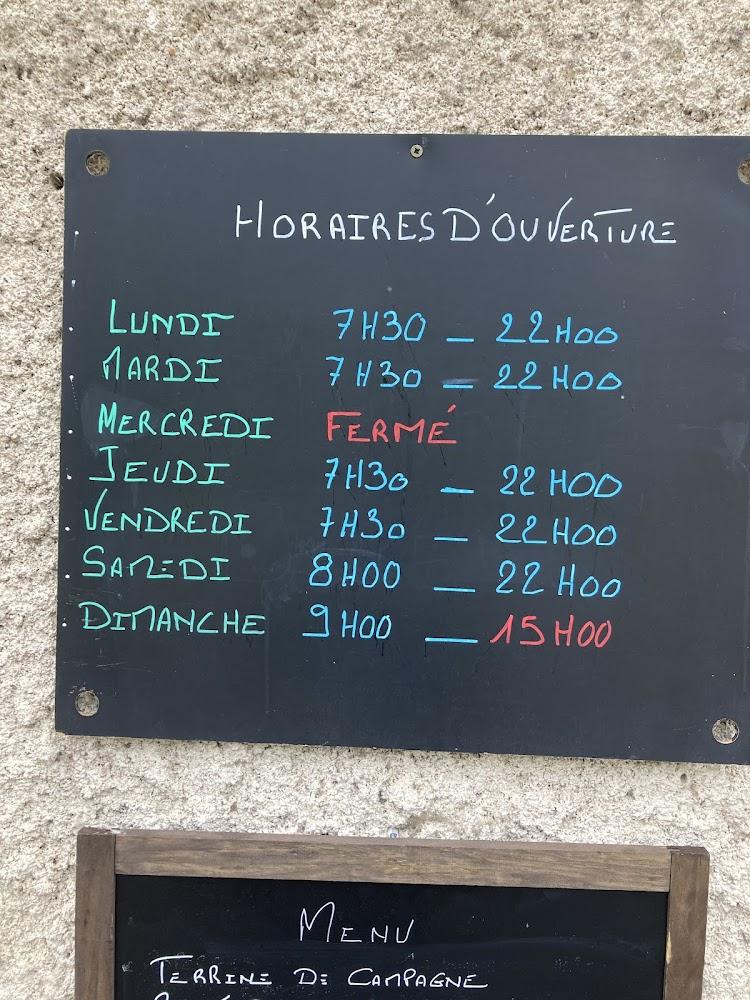 HORAIRES D'OUVERTURE
LUNDI 7H30 _ 22H00
MARDI 7H30 _ 22H00
MERCREDI FERMÉ
JEUDI 7H30 _ 22H00
VENDREDI 7H30 _ 22H00
SAMEDI 8H00 _ 22H00
DIMANCHE 9H00 _ 15H00
MENU
TERRINE DE CAMPAGNE